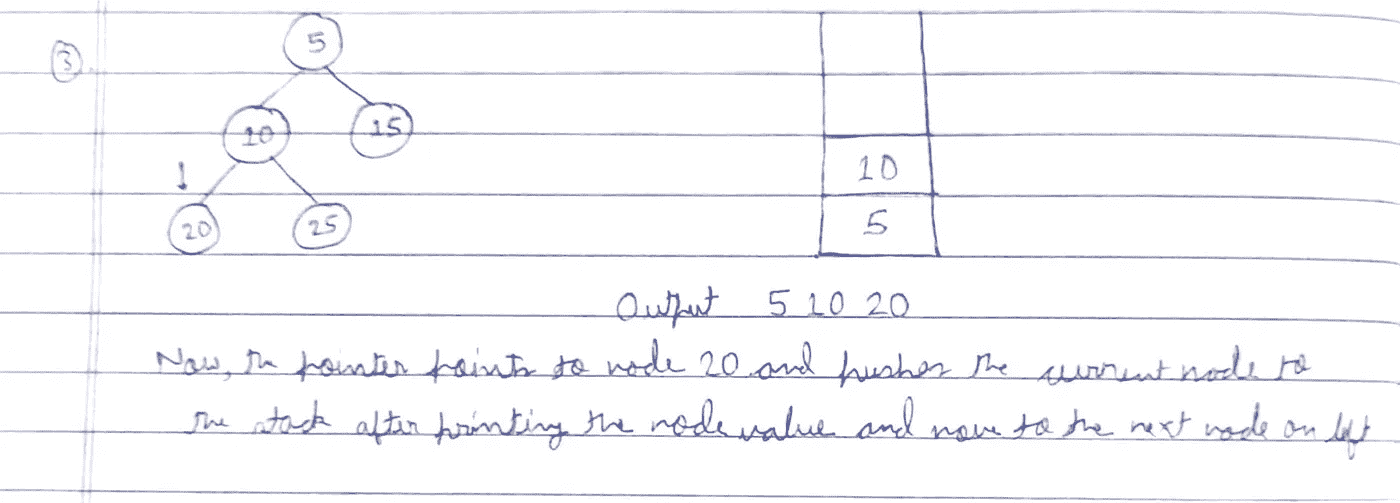 3.
5
10 15
20 25
10
5
Output 5 10 20
Now, the pointer points to node 20 and pushes the current node to
the stack after printing the node value and move to the next node on left